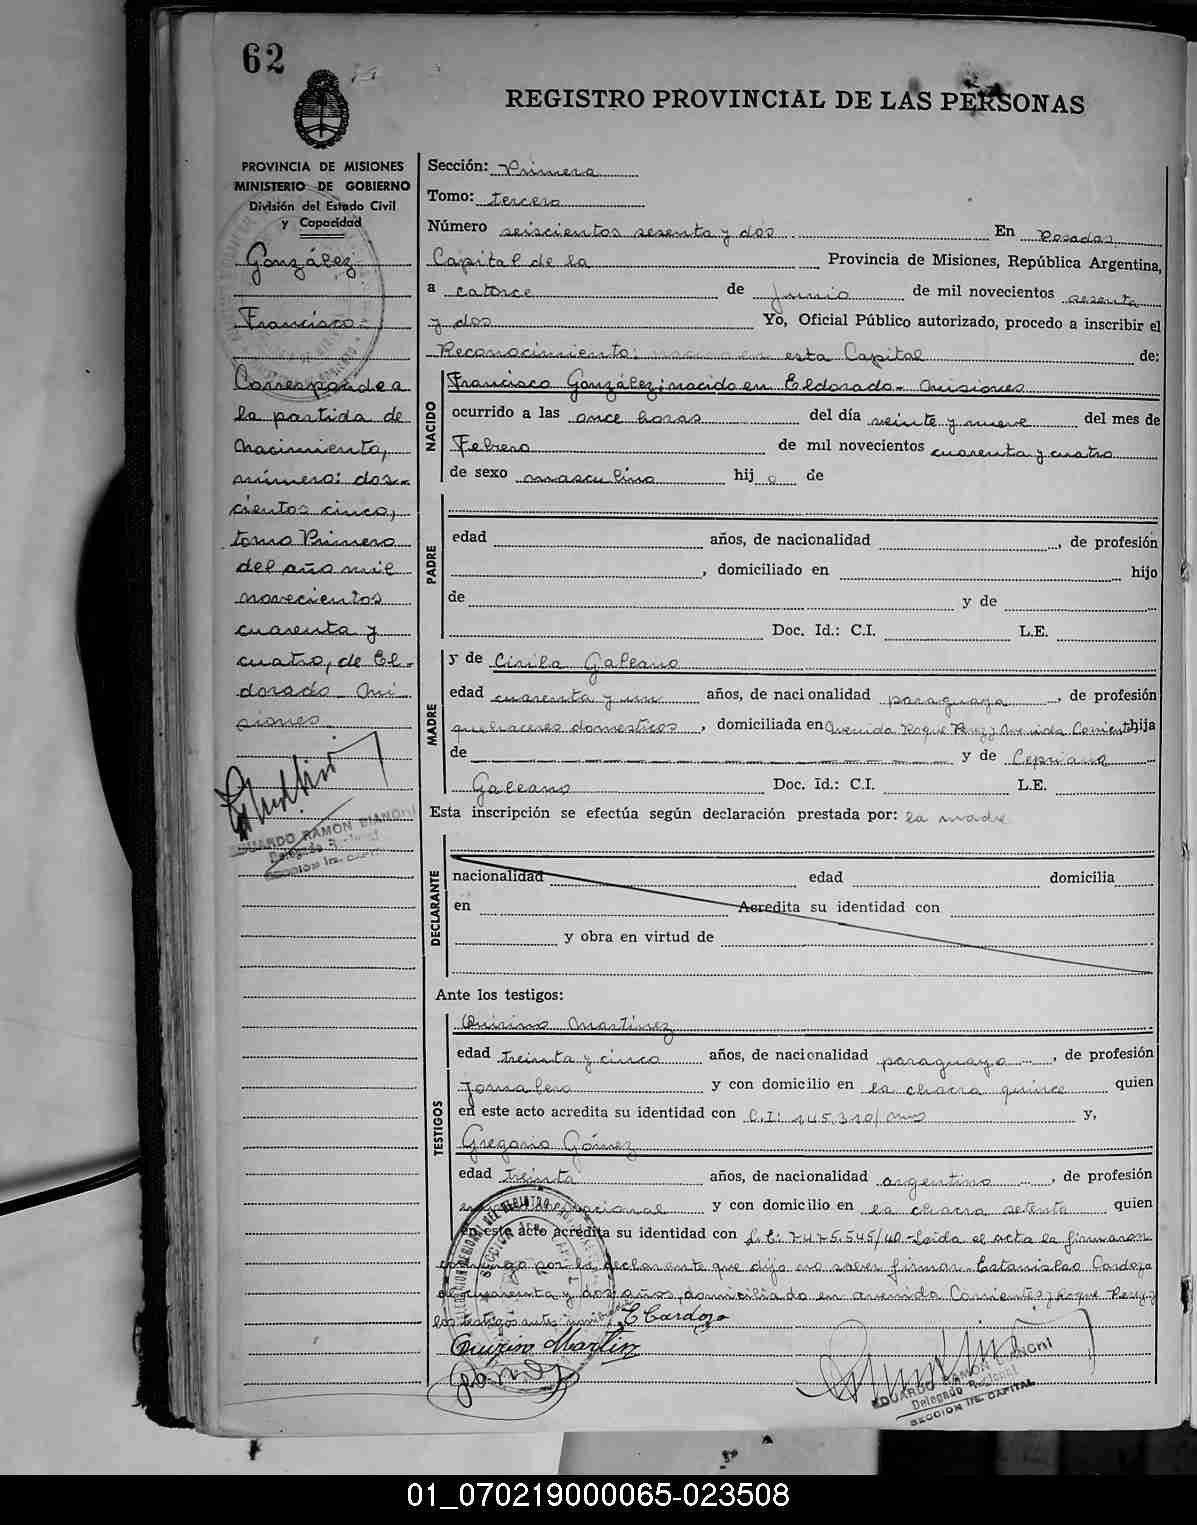 62
REGISTRO PROVINCIAL DE LAS PERSONAS
PROVINCIA DE MISIONES
MINISTERIO DE GOBIERNO
División del Estado Civil
y Capacidad
González
Francisco
Corresponde a
la partida de
nacimiento,
número: dos-
cientos cinco,
tomo Primero
del año mil
novecientos
cuarenta y
cuatro, de El-
dorado Mi
siones
EDUARDO RAMON BIANCHI
Delegado Regional
SECCION 1ra. CAPITAL
Sección: Primera
Tomo: tercero
Número seiscientos sesenta y dos En Posadas
Capital de la Provincia de Misiones, República Argentina,
a catorce de Junio de mil novecientos sesenta
y dos Yo, Oficial Público autorizado, procedo a inscribir el
Reconocimiento: en esta Capital de:
NACIDO
Francisco González; nacido en Eldorado - Misiones
ocurrido a las once horas del día veinte y nueve del mes de
Febrero de mil novecientos cuarenta y cuatro
de sexo masculino hij o de
PADRE
edad años, de nacionalidad , de profesión
, domiciliado en hijo
de y de
Doc. Id.: C.I. L.E.
MADRE
y de Cirila Galeano
edad cuarenta y un años, de nacionalidad paraguaya , de profesión
quehaceres domesticos , domiciliada en Avenida Roque Perez y Avenida Corrientes hija
de y de Cepriana
Galeano Doc. Id.: C.I. L.E.
Esta inscripción se efectúa según declaración prestada por: la madre
DECLARANTE
nacionalidad edad domicilia
en Acredita su identidad con
y obra en virtud de
Ante los testigos:
TESTIGOS
Quirino Martinez
edad treinta y cinco años, de nacionalidad paraguayo , de profesión
Jornalero y con domicilio en la chacra quince quien
en este acto acredita su identidad con C.I: 145.310/ y,
Gregorio Gómez
edad treinta años, de nacionalidad argentino , de profesión
nacional y con domicilio en la chacra setenta quien
en este acto acredita su identidad con 7.475.545/40 - Leida el acta la firmaron
conmigo por la declarante que dijo no saber firmar - Estanislao Cardozo
de cuarenta y dos años, domiciliado en avenida Corrientes y Roque Perez y
los testigos antes
E Cardozo
Quirino Martin
EDUARDO RAMON BIANCHI
Delegado Regional
SECCION 1ra. CAPITAL
01_070219000065-023508